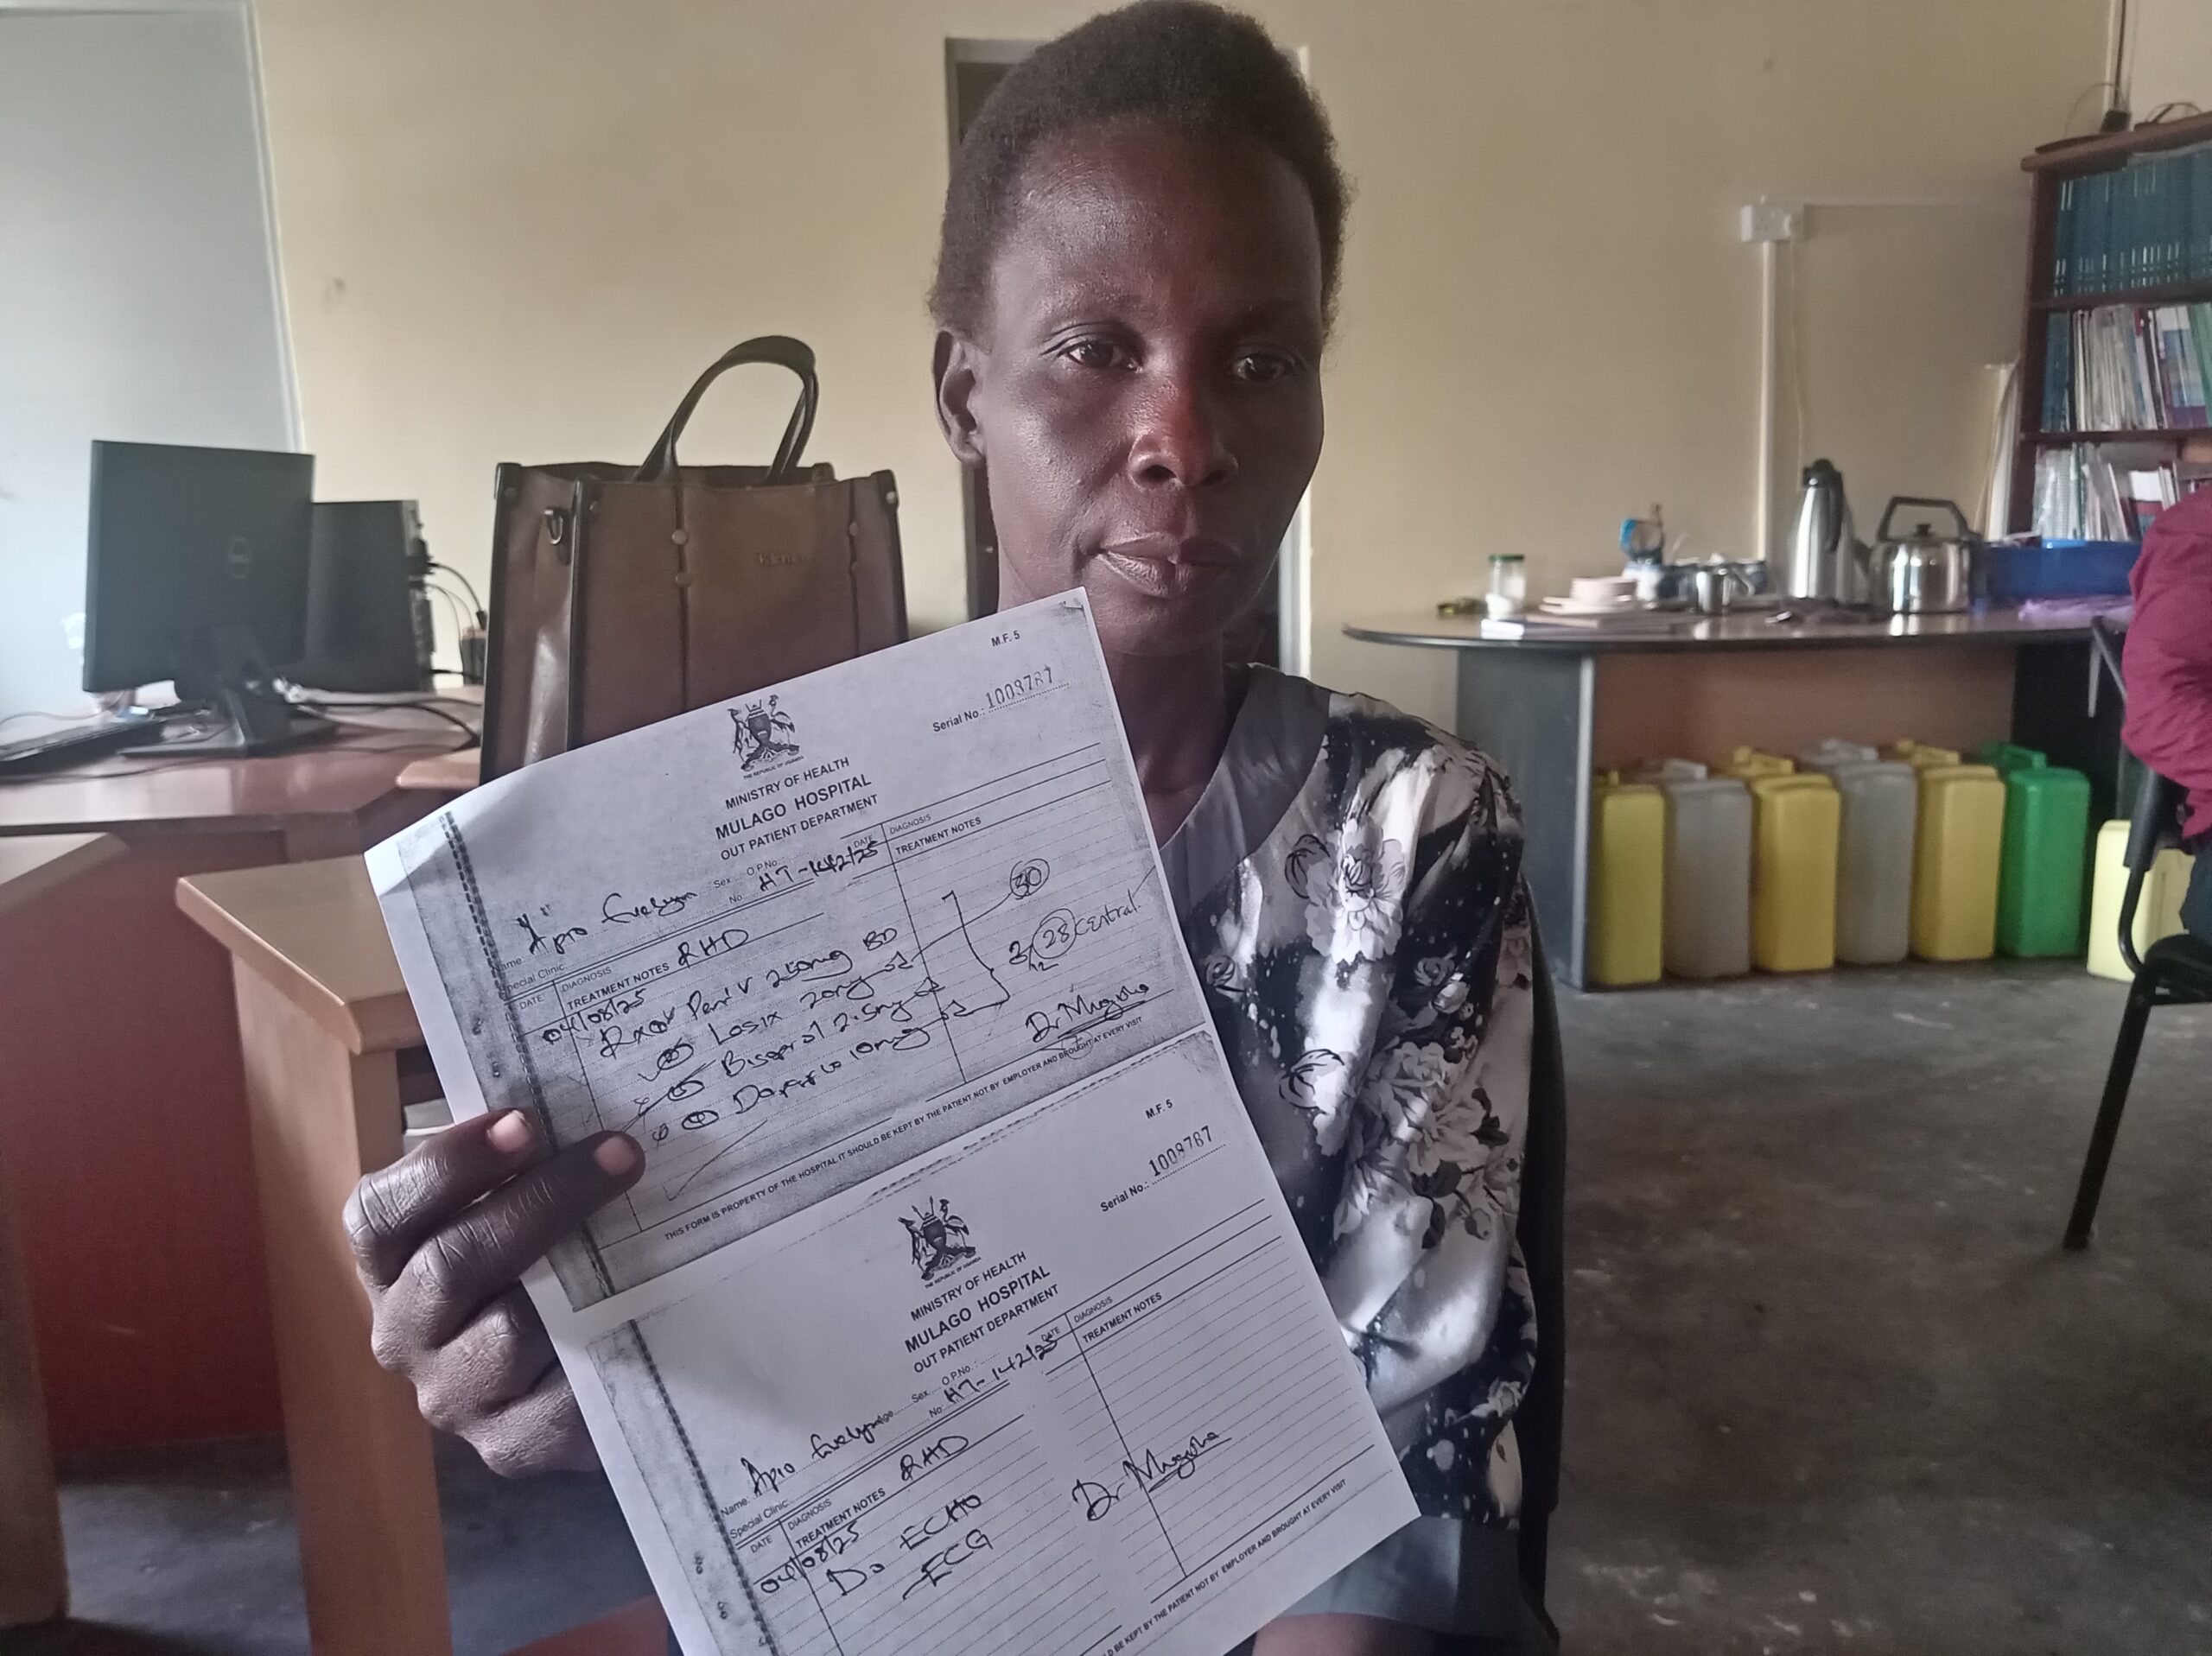 M.F. 5
Serial No.: 1009787
THE REPUBLIC OF UGANDA
MINISTRY OF HEALTH
MULAGO HOSPITAL
OUT PATIENT DEPARTMENT
Name Apio Evelyn Sex O.P.No.
No H7-142/25
Special Clinic
DATE DIAGNOSIS RHD
TREATMENT NOTES
DATE DIAGNOSIS
TREATMENT NOTES
04/08/25
Rx Pen V 250mg BD
Losix 20mg
Bisoprol 2.5mg
10mg
30
3/12 28 Central
Dr
THIS FORM IS PROPERTY OF THE HOSPITAL IT SHOULD BE KEPT BY THE PATIENT NOT BY EMPLOYER AND BROUGHT AT EVERY VISIT
M.F. 5
Serial No.: 1009787
THE REPUBLIC OF UGANDA
MINISTRY OF HEALTH
MULAGO HOSPITAL
OUT PATIENT DEPARTMENT
Name: Apio Evelyn age Sex O.P.No.:
No H7-142/25
Special Clinic
DATE DIAGNOSIS RHD
TREATMENT NOTES
DATE DIAGNOSIS
TREATMENT NOTES
04/08/25
Do ECHO
ECG
Dr
LD BE KEPT BY THE PATIENT NOT BY EMPLOYER AND BROUGHT AT EVERY VISIT